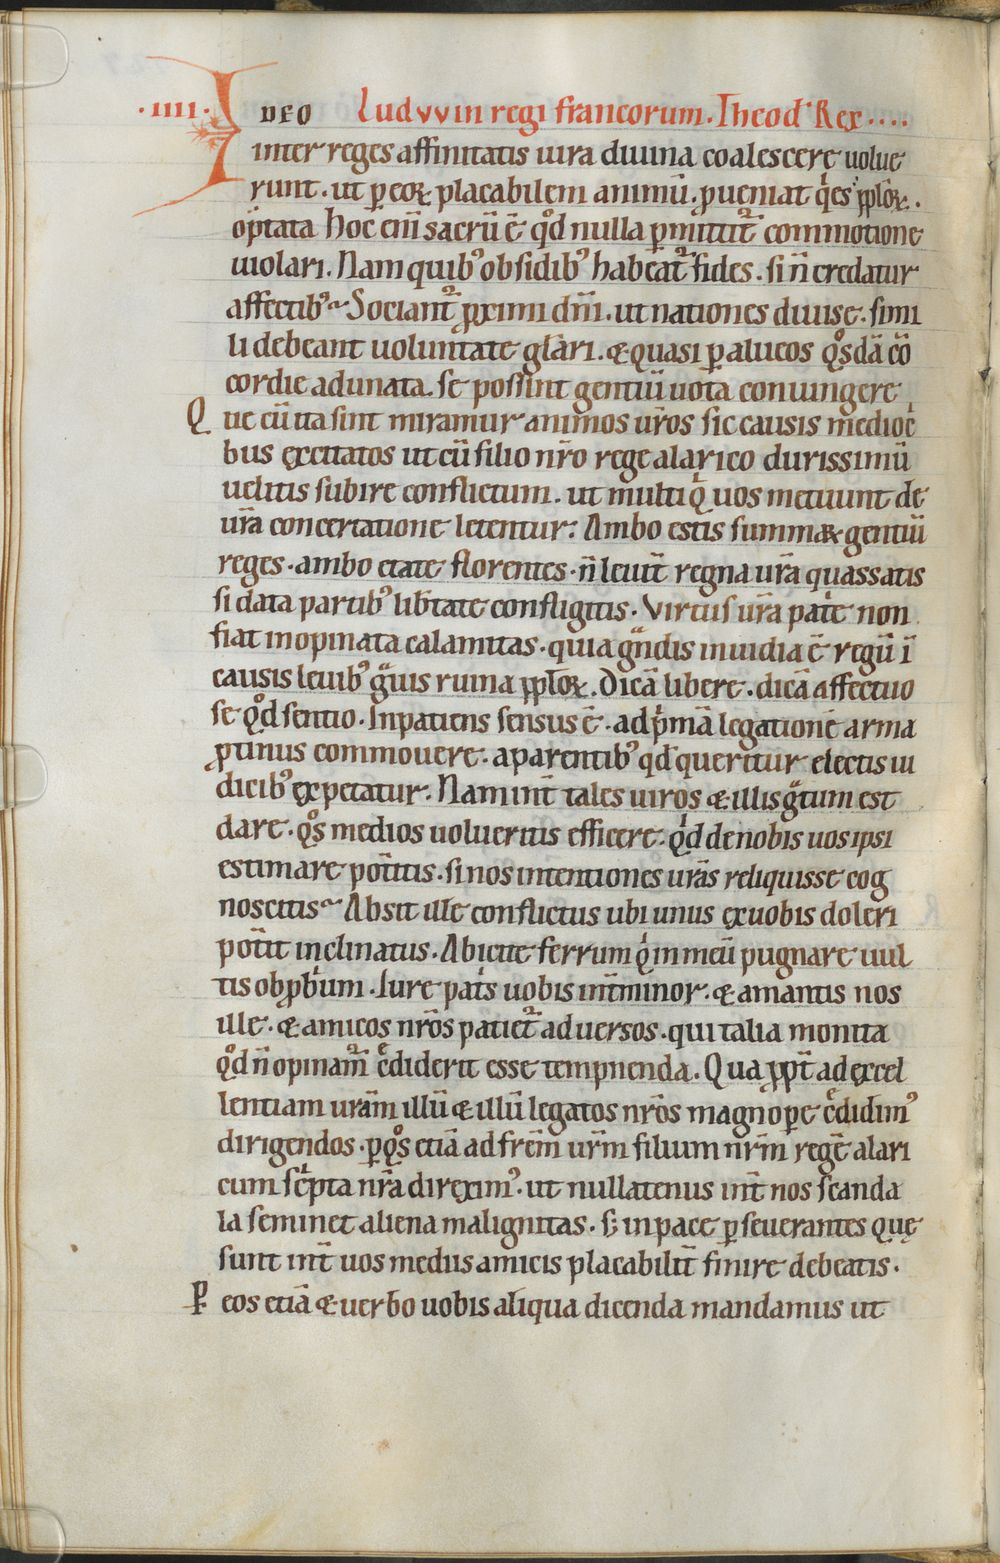 ·IIII· I DEO Luduuin regi francorum. Theod' Rex····
inter reges affinitatis iura diuina coalescere uolue
runt. ut p̱ eoꝝ placabilem animū. ꝓueniat qͥes pp̄loꝝ.
optata Hoc eni̅ sacrū ē qᵒd nulla p̱mittit᷑ commotione
uiolari. Nam quibꝰ obsidibꝰ habeat᷑ fides. si n̄ credatur
affectibꝰ. Sociant᷑ ꝓximi dn̄i. ut nationes diuise. simi
li debeant uoluntate gl̄ari. & quasi p̱ alueos qᵒsdā cō
cordie adunata. se possint gentiū uota conuingere
Que cū ita sint miramur animos ur̄os sic causis mediocͥ
bus excitatos ut cū filio nr̄o rege alarico durissimū
uelitis subire conflictum. ut multi qͥ uos metuunt de
ur̄a concertatione letentur: Ambo estis summaꝝ gentiū
reges. ambo etate florentes. n̄ leuit̄ regna ur̄a quassatis
si data partibꝰ lib̄tate confligitis. Virtus ur̄a patͥe non
fiat inopinata calamitas. quia gᷓndis inuidia ē regū ī
causis leuibꝰ gᷓuis ruina pp̄loꝝ. Dicā libere. dicā affectuo
se qᵒd sentio. Inpatiens sensus ē. ad pͥmā legationē arma
ꝓtinus commouere. a parentibꝰ qd̄ queritur electis iu
dicibꝰ expetatur. Nam int̄ tales uiros & illis gᷓtum est
dare. qᵒs medios uolueritis efficere. qͥd de nobis uos ipsi
estimare pot̄itis. si nos intentiones ur̄as reliquisse cog
noscitis. Absit ille conflictus ubi unus ex uobis doleri
pot̄it inclinatus. Abicite ferrum qͥ in meū pugnare uul
tis obꝓbͥum. Iure patͥs uobis int̄minor. & amantis nos
ille. & amicos nr̄os patiet᷑ aduersos. qui talia monita
qᵒd n̄ opinam᷑ cͤdiderit esse tempnenda. Qua ꝓpt̄ ad excel
lentiam ur̄am illū & illū legatos nr̄os magnop̱e cͤdidimꝰ
dirigendos. p̱ qᵒs etiā ad fr̄em ur̄m filium nr̄m regē alari
cum scͥpta nr̄a direximꝰ. ut nullatenus int̄ nos scanda
la seminet aliena malignitas. s; in pace p̱seuerantes quę
sunt int̄ uos mediis amicis placabilit̄ finire debeatis.
P̱ eos etiā & uerbo uobis aliqua dicenda mandamus ut